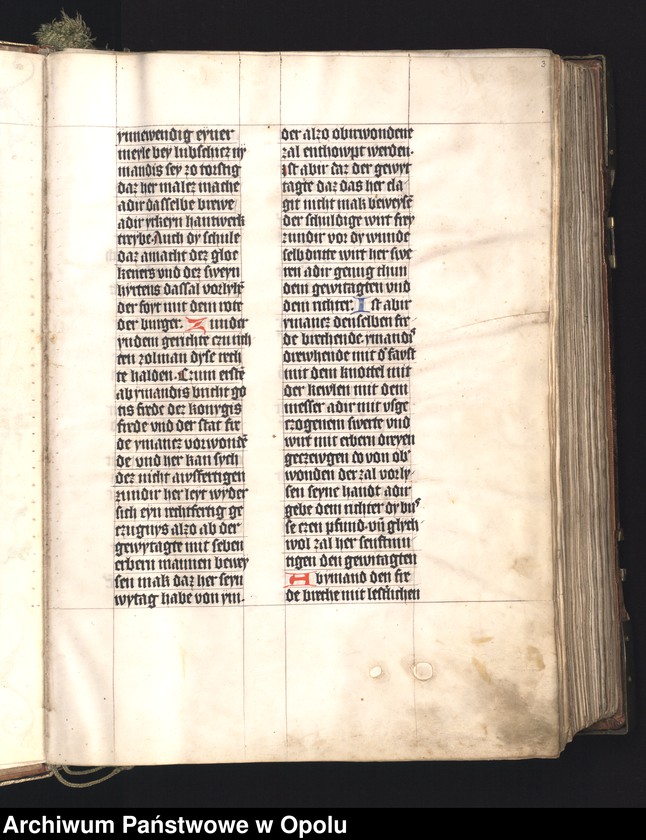 3
ynnewendig eyner
meyle bey lubschicz ny
mandis sey zo torstig
daz her malcz mache
adir dasselbe brewe
adir yrkeyn hantwerk
treybe. Auch dy schule
daz amacht dez gloc
keners vnd dez sweyn
hyrtens das sal vorlyẽ
der foyt mit dem rote
der burger. Zundir
yn dem gerichte czu ich
ten zol man dyse rech
te halden. Czum erstẽ
ab ymandis bricht go
tis frede dez konygis
frede vnd der stat fre
de ymanez vorwondẽ
de vnd her kan sych
dez nicht awsfertigen
zundir her leyt wyder
sich eyn rechtfertig ge
czugnys alzo ab der
gewytagte mit seben
erbern mannen bewey
sen mak daz her seyn
wytag habe von ym.
der alzo obirwondene
zal enthowpt werden.
Ist abir daz der gewyt
tagte daz das her cla
git nicht mak beweysẽ
der schuldige wirt frey
zundir vor dy wunde
selbdritte wirt her swe
ren adir genug thun
dem gewitagten vnd
dem richter. Ist abir
ymanez denselben fre
de brechende ymandis
drewhende mit der fawst
mit dem knottel mit
der kewlen mit dem
messer adir mit vsge
czogenem swerte vnd
wirt mit erbern dreyen
geczewgen do von obir
wonden der zal vorly
sen seyne handt adir
gebe dem richter dy bus
se czen pfund vñ glych
wol zal her senftmu
tigen den gewitagten
Ab ymand den fre
de breche mit lestirlichen
Archiwum Państwowe w Opolu